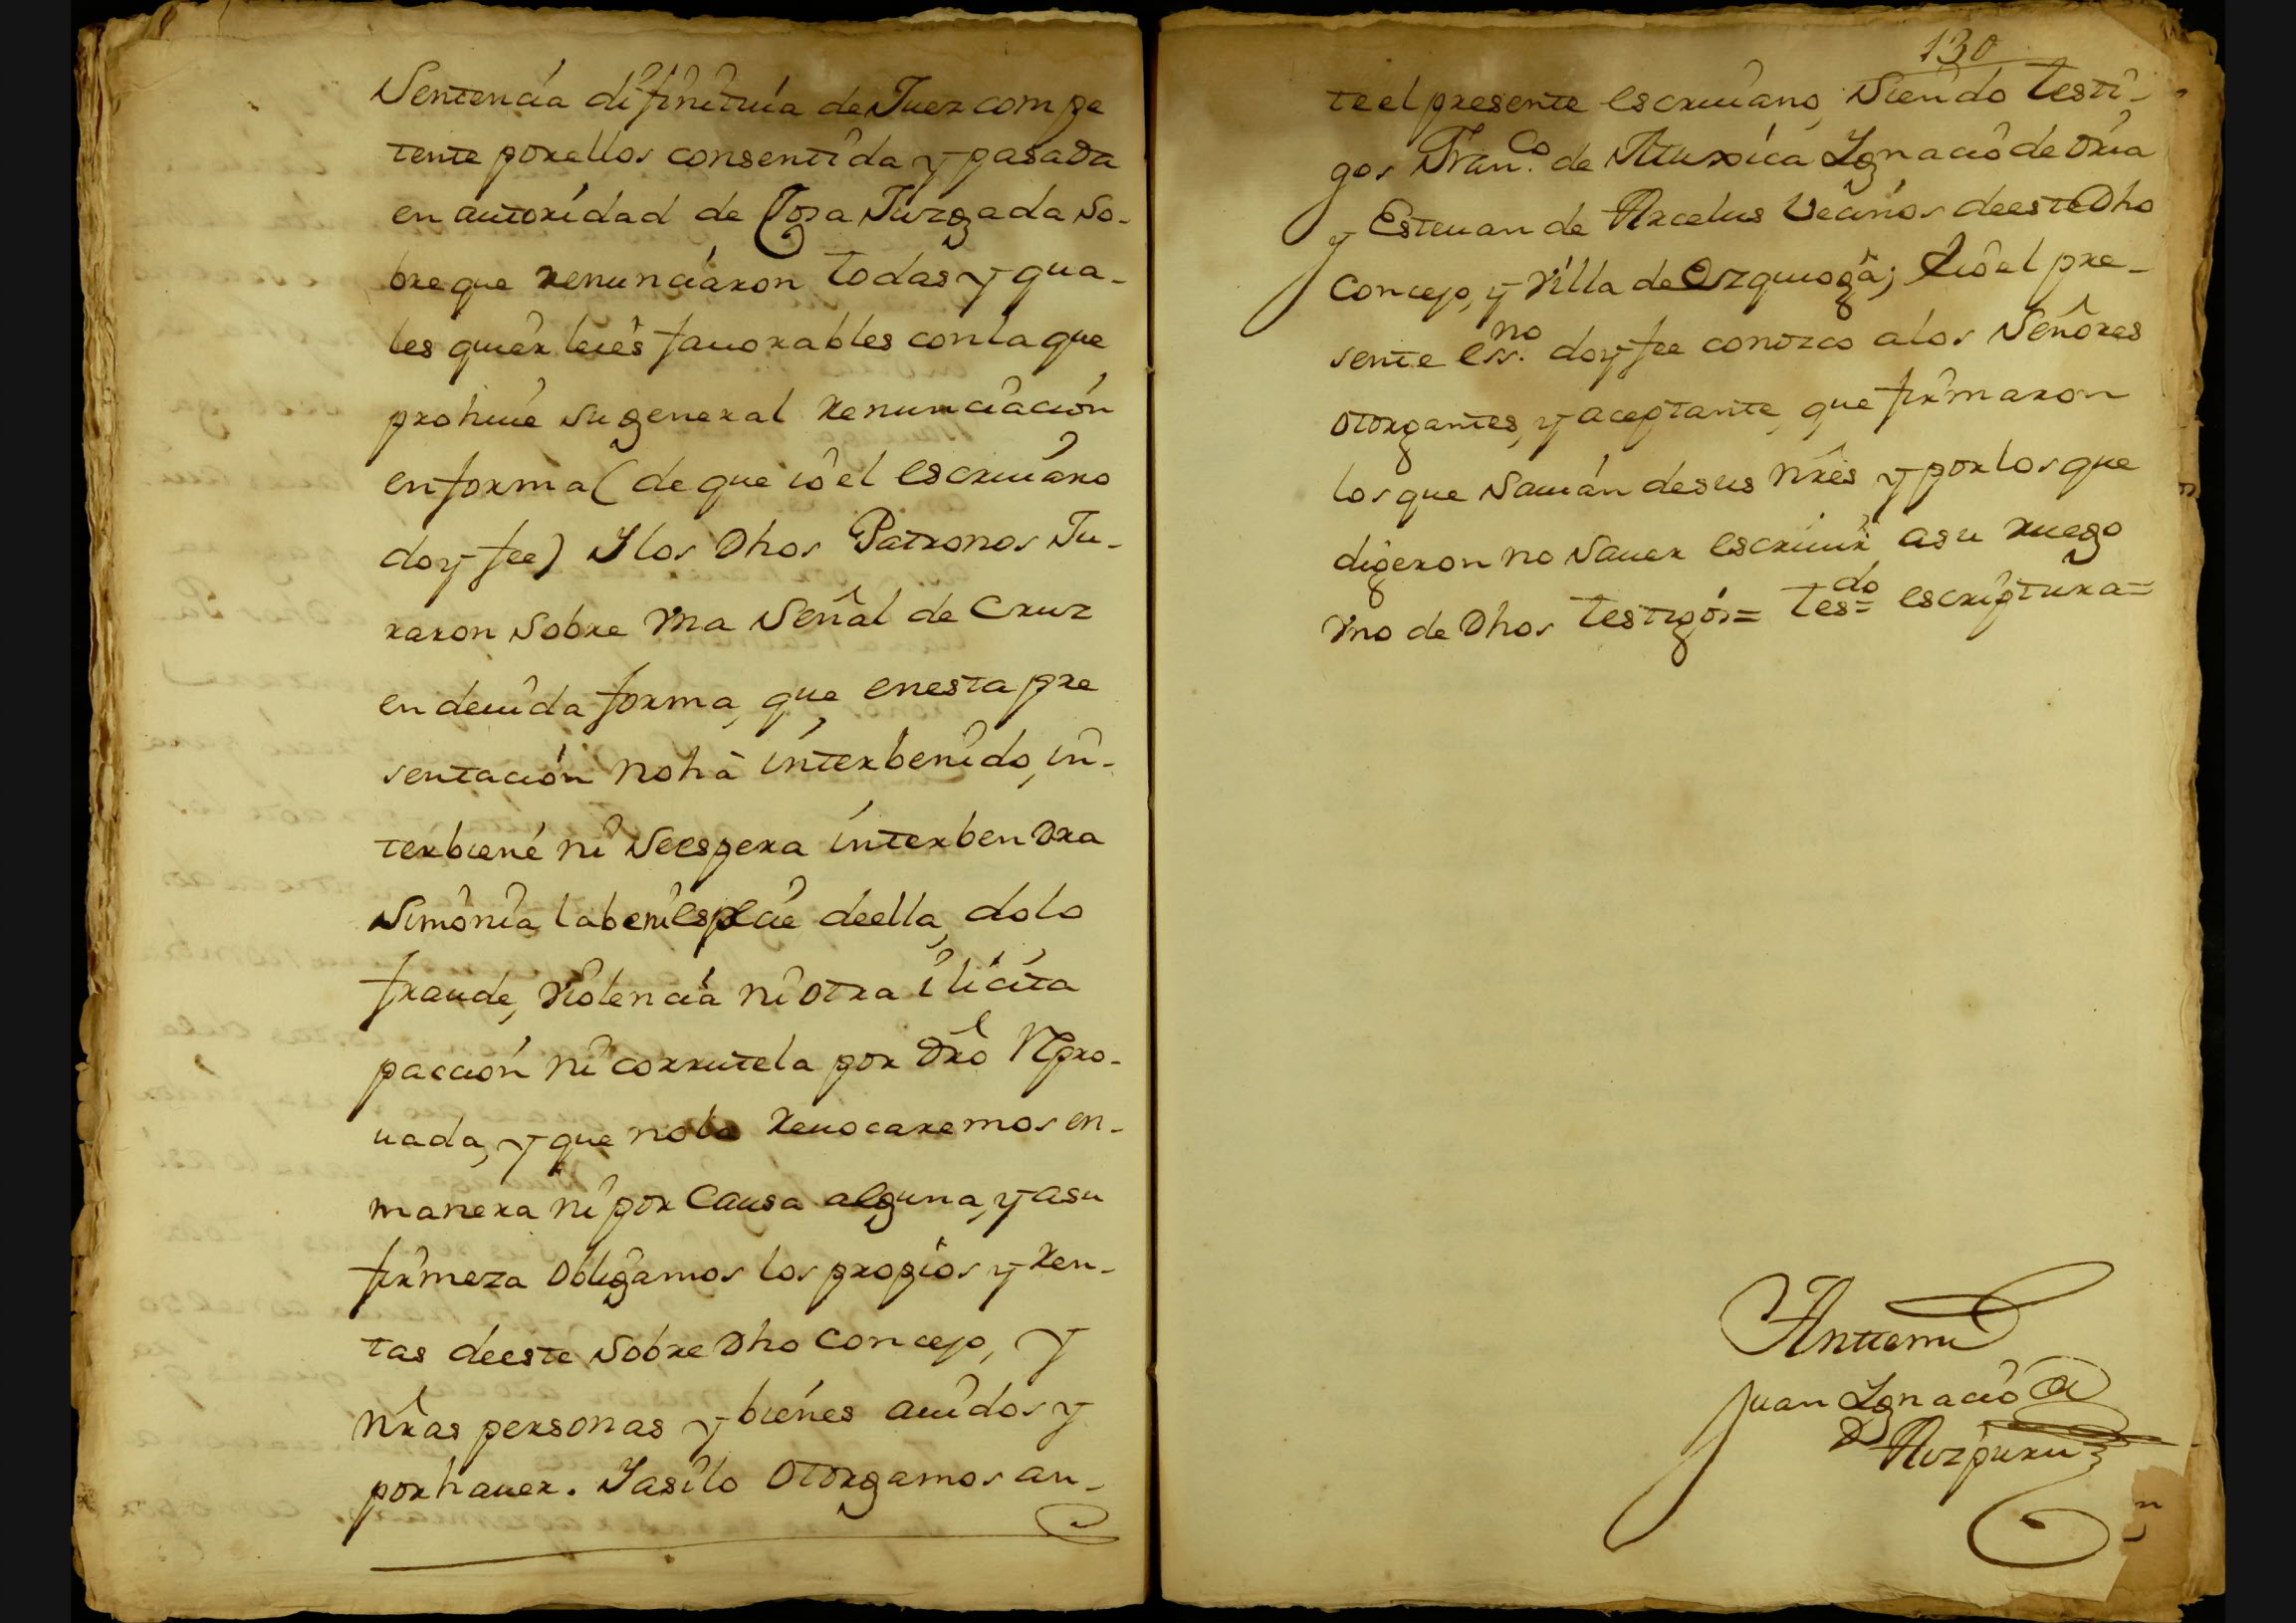 Sentencia difinitiuia de Juez compe
tente por ellos consentida y pasada
en autoridad de Cosa Juzgada so-
bre que renunciaron todas y qua-
les quier leies fauorables con la que
prohiue su general renunciación
en forma (de que io el escriuano
doy fee) Y los Dhos Patronos Ju-
raron sobre vna señal de Cruz
en deuida forma, que en esta pre
sentación no hà interbenido, in-
terbiene ni se espera interbendra
simonia labe ni espécie de ella, dolo
fraude, violencia ni otra ilicita
pacción ni corrutela por dro repro-
uada, y que no la reuocaremos en-
manera ni por Causa alguna, y a su
firmeza obligamos los propios y ren-
tas de este sobre dho concejo, y
nras personas y bienes auidos y
por hauer. Y asi lo otorgamos an-
130
te el presente escriuano, siendo testi-
gos Franco. de Muxica Ignacio de Oria
y Esteuan de Arcelus vecinos de este Dho
Concejo, y Villa de Ezquioga; È io el pre-
sente essno. doy fee conozco a los señores
otorgantes, y aceptante, que firmaron
los que sauian de sus nres y por los que
digeron no sauer escriuir a su ruego
vno de Dhos testigos= tesdo= escriptura=
Anttemi
Juan Ignacio
D Aizpuru